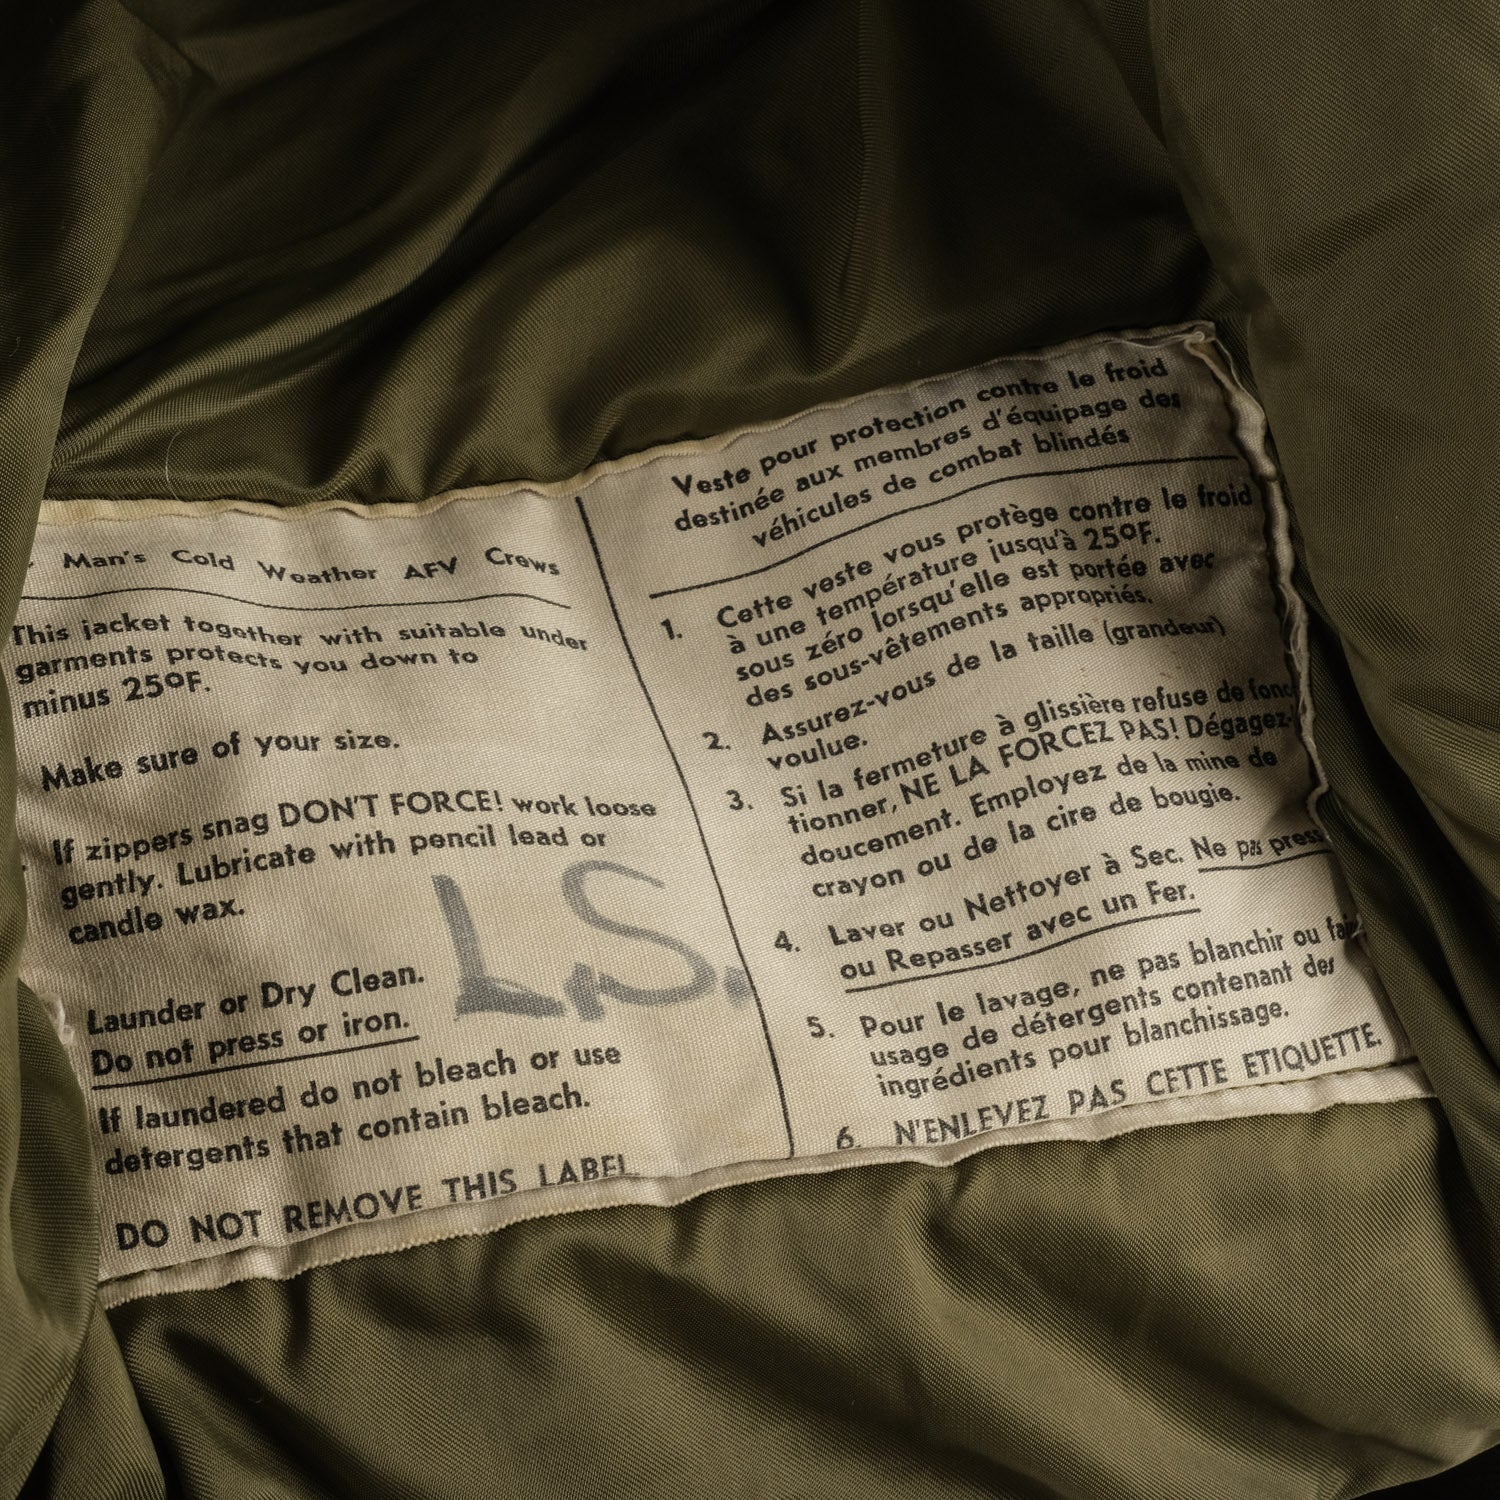 Man's Cold Weather AFV Crews
This jacket together with suitable under
garments protects you down to
minus 25ºF.
Make sure of your size.
If zippers snag DON'T FORCE! work loose
gently. Lubricate with pencil lead or
candle wax.
Launder or Dry Clean.
Do not press or iron.
If laundered do not bleach or use
detergents that contain bleach.
DO NOT REMOVE THIS LABEL
L.S.
Veste pour protection contre le froid
destinée aux membres d'équipage des
véhicules de combat blindés
1. Cette veste vous protège contre le froid
à une température jusqu'à 25ºF.
sous zéro lorsqu'elle est portée avec
des sous-vêtements appropriés.
2. Assurez-vous de la taille (grandeur)
voulue.
3. Si la fermeture à glissière refuse de fonc
tionner, NE LA FORCEZ PAS! Dégagez-
doucement. Employez de la mine de
crayon ou de la cire de bougie.
4. Laver ou Nettoyer à Sec. Ne pas press
ou Repasser avec un Fer.
5. Pour le lavage, ne pas blanchir ou fai
usage de détergents contenant des
ingrédients pour blanchissage.
6. N'ENLEVEZ PAS CETTE ETIQUETTE.